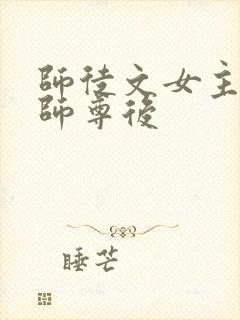 師徒文女主
師尊後
睡芒